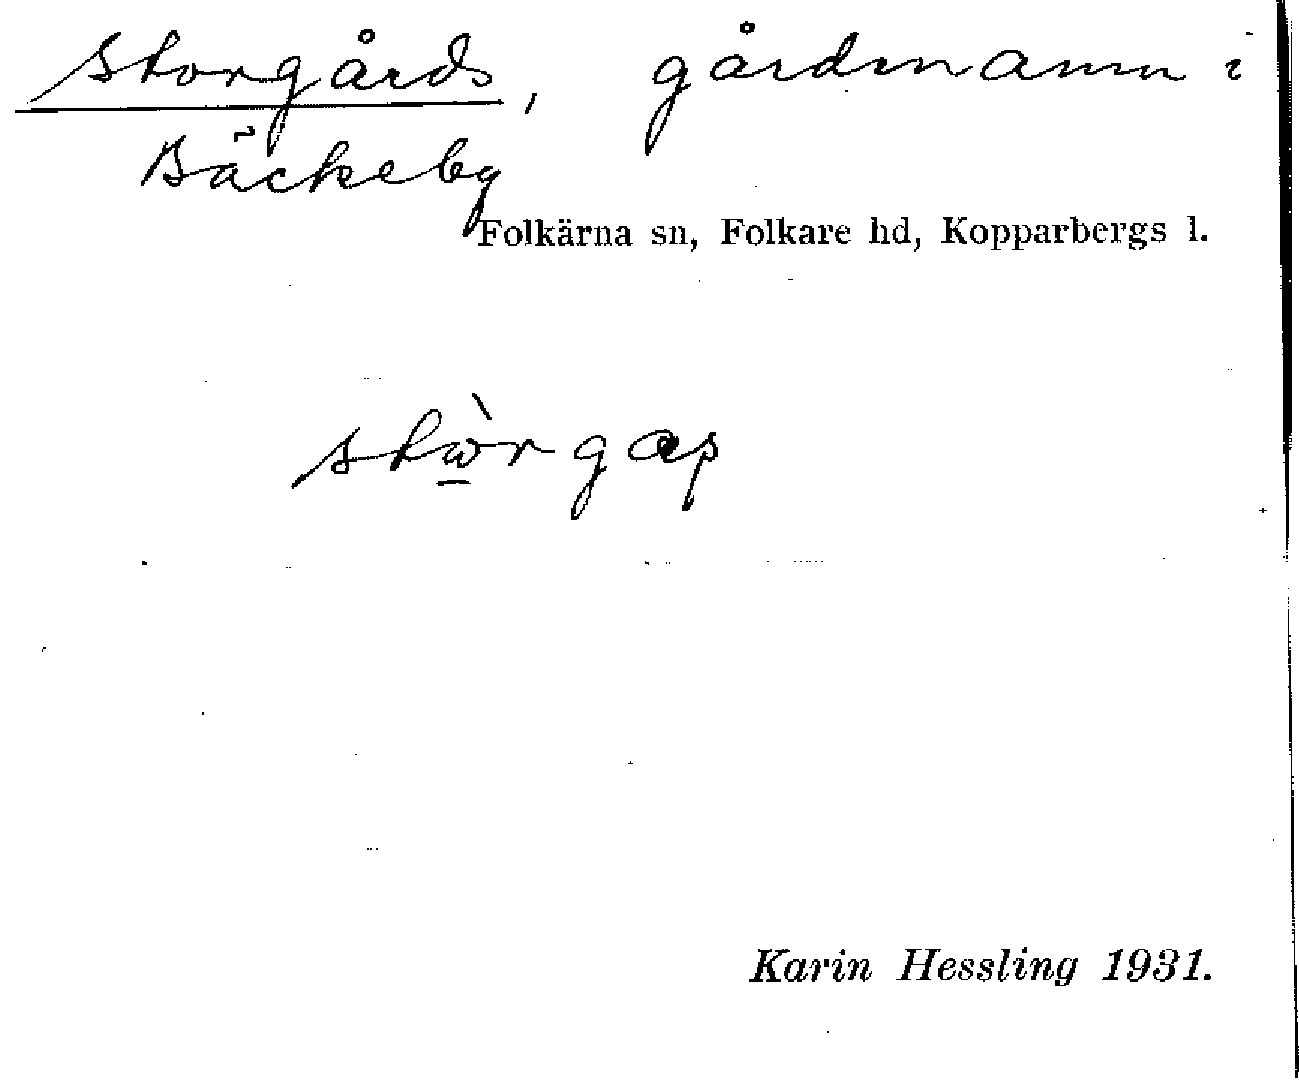 Storgårds, gårdsnamn i
Bäckeby
Folkärna sn, Folkare hd, Kopparbergs l.
Karin Hessling 1931.